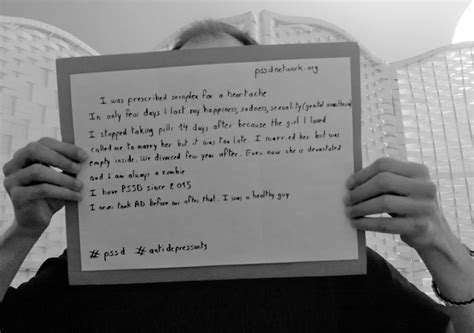 pssdnetwork.org
I was prescribed seroplex for a heartache
In only few days I lost my happiness, sadness, sexuality (genital anesthesia)
I stopped taking pills 14 days after because the girl I loved
called me to marry her but it was too late. I married her but was
empty inside. We divorced few year after. Even now she is devastated
and i am always a zombie
I have PSSD since 2015
I never took AD before nor after that. I was a healthy guy
# pssd # antidepressants